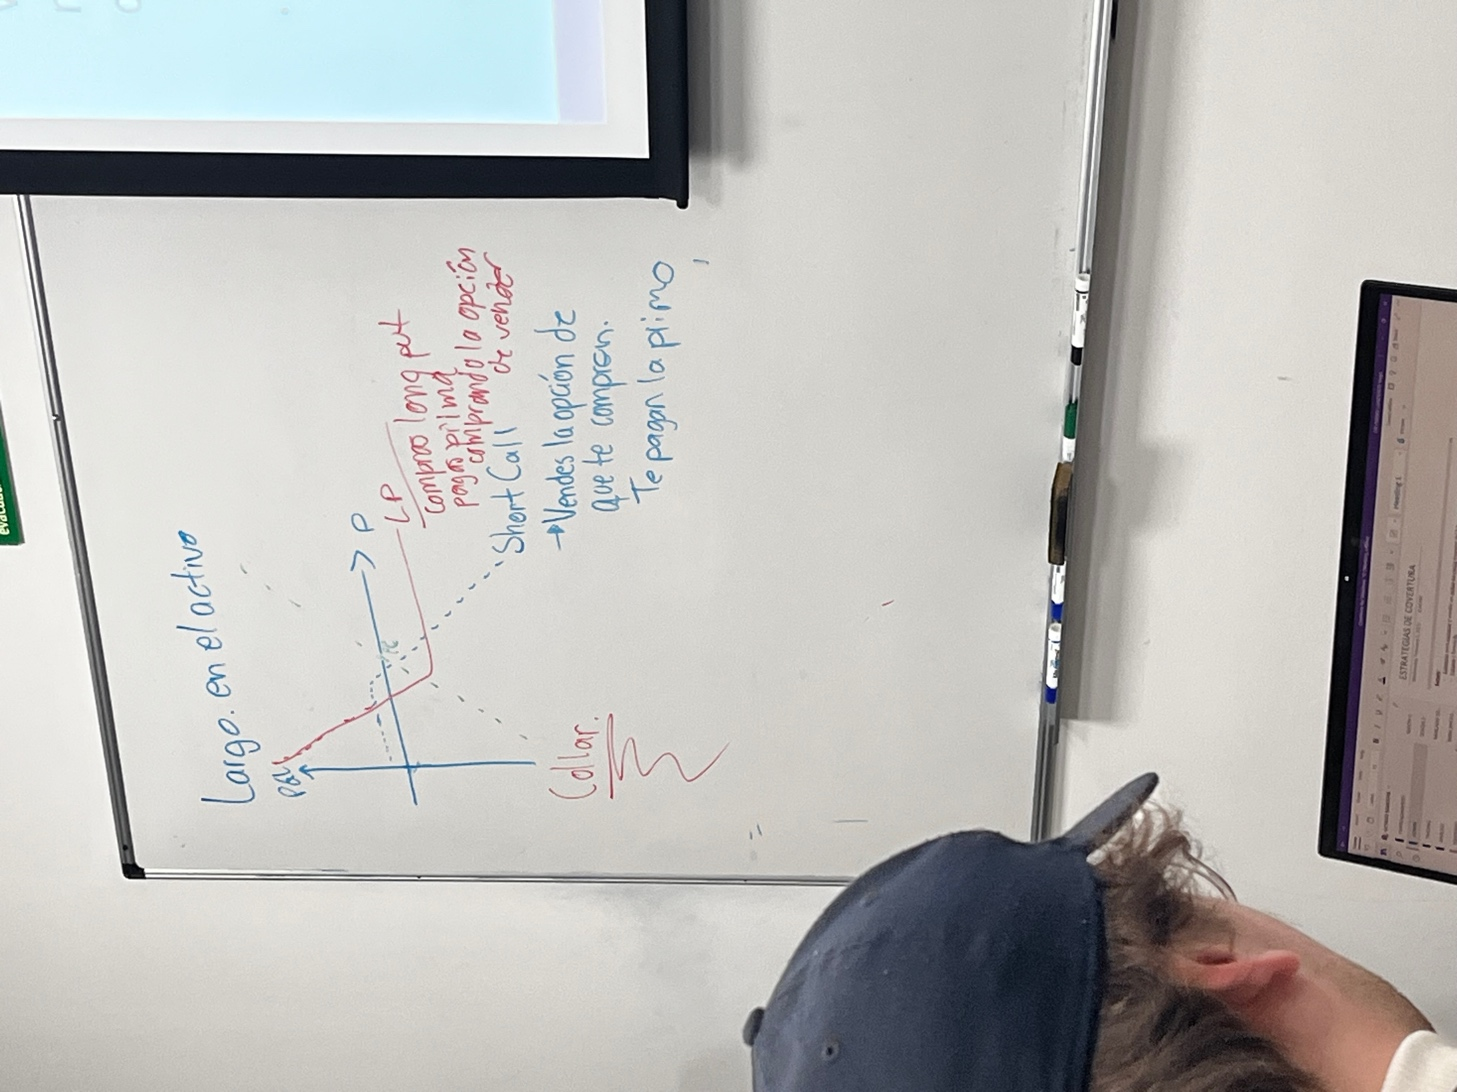 Largo. en el activo
P&L
P
LP
compras long put
pagas prima
comprando la opción
de vender
Short Call
→ Vendes la opción de
que te compren.
Te pagan la prima
Collar.
ESTRATEGIAS DE COVERTURA